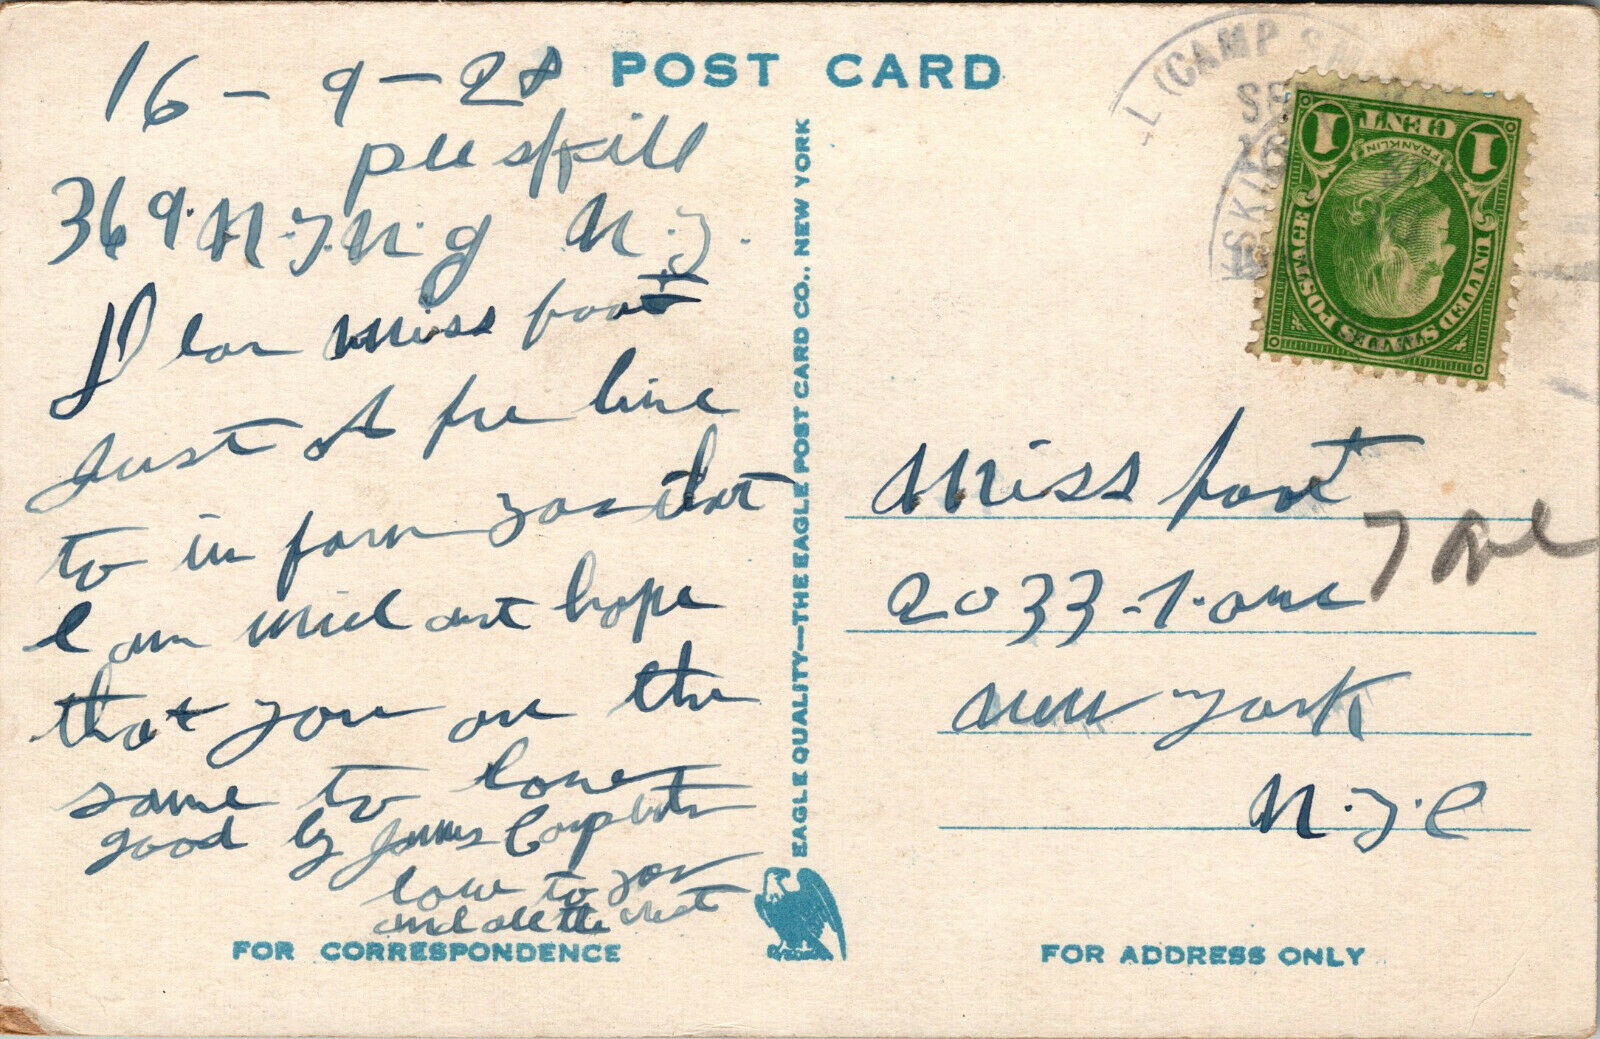 POST CARD
16 - 9 - 28
peeskill
369. N. Y. N. g N. Y.
Dear Miss foot
Just a few line
to in form you that
I am well and hope
that you are the
same to love
good by James Carpenter
love to you
and all the rest
FOR CORRESPONDENCE
EAGLE QUALITY—THE EAGLE POST CARD CO., NEW YORK
(CAMP
SE
1 CENT 1
FRANKLIN
UNITED STATES POSTAGE
Miss foot
2033-7. ave
7 Ave
new york
N. Y. C
FOR ADDRESS ONLY